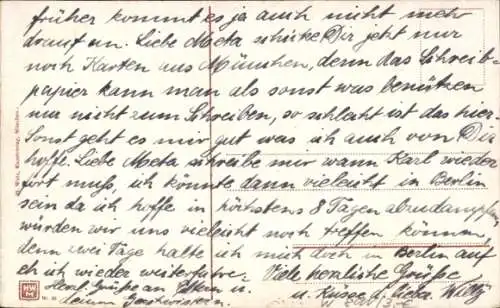 früher kommt es ja auch nicht mehr
drauf an. Liebe Meta schicke Dir jetzt nur
noch Karten aus München, denn das Schreib-
papier kann man als sonst was benützen
nur nicht zum Schreiben, so schlecht ist das hier.
Sonst geht es mir gut was ich auch von Dir
hoffe. Liebe Meta schreibe mir wann Karl wieder
fort muß, ich könnte dann vieleicht in Berlin
sein da ich hoffe in höchstens 8 Tagen abzudampfen,
würden wir uns vieleicht noch treffen können,
denn zwei Tage halte ich mich doch in Berlin auf
eh ich wieder weiterfahre. Viele herzliche Grüße
Herzl. Grüße an Eltern u. u. Küsse Willy
deinen Geschwistern.
HWM